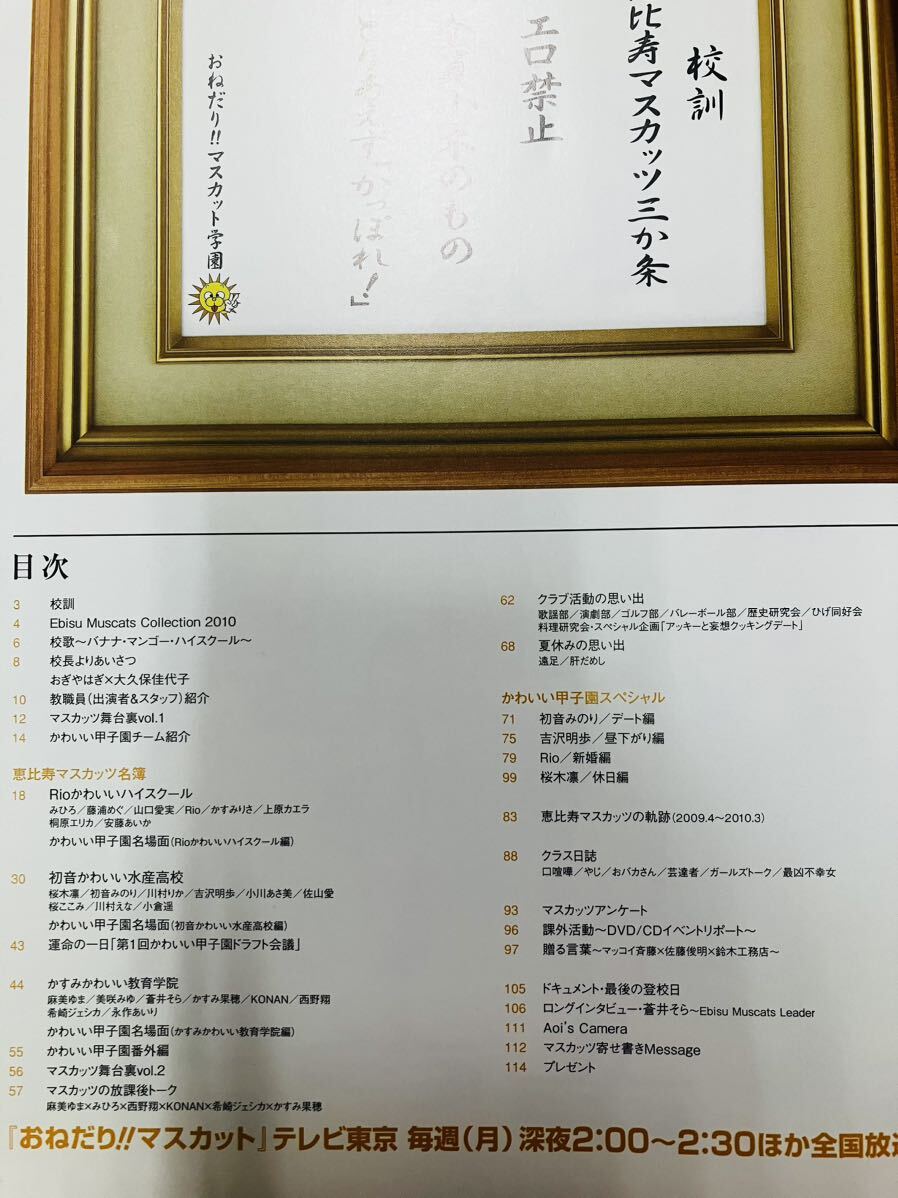 校訓
比寿マスカッツ三か条
エロ禁止
のもの
かっぽれ!」
おねだり!!マスカット学園
目次
3 校訓
4 Ebisu Muscats Collection 2010
6 校歌~バナナ・マンゴー・ハイスクール~
8 校長よりあいさつ
おぎやはぎ×大久保佳代子
10 教職員(出演者&スタッフ)紹介
12 マスカッツ舞台裏vol.1
14 かわいい甲子園チーム紹介
恵比寿マスカッツ名簿
18 Rioかわいいハイスクール
みひろ/藤浦めぐ/山口愛実/Rio/かすみりさ/上原カエラ
桐原エリカ/安藤あいか
かわいい甲子園名場面(Rioかわいいハイスクール編)
30 初音かわいい水産高校
桜木凛/初音みのり/川村りか/吉沢明歩/小川あさ美/佐山愛
桜ここみ/川村えな/小倉遥
かわいい甲子園名場面(初音かわいい水産高校編)
43 運命の一日「第1回かわいい甲子園ドラフト会議」
44 かすみかわいい教育学院
麻美ゆま/美咲みゆ/蒼井そら/かすみ果穂/KONAN/西野翔
希崎ジェシカ/永作あいり
かわいい甲子園名場面(かすみかわいい教育学院編)
55 かわいい甲子園番外編
56 マスカッツ舞台裏vol.2
57 マスカッツの放課後トーク
麻美ゆま×みひろ×西野翔×KONAN×希崎ジェシカ×かすみ果穂
62 クラブ活動の思い出
歌謡部/演劇部/ゴルフ部/バレーボール部/歴史研究会/ひげ同好会
料理研究会・スペシャル企画「アッキーと妄想クッキングデート」
68 夏休みの思い出
遠足/肝だめし
かわいい甲子園スペシャル
71 初音みのり/デート編
75 吉沢明歩/昼下がり編
79 Rio/新婚編
99 桜木凛/休日編
83 恵比寿マスカッツの軌跡(2009.4~2010.3)
88 クラス日誌
口喧嘩/やじ/おバカさん/芸達者/ガールズトーク/最凶不幸女
93 マスカッツアンケート
96 課外活動~DVD/CDイベントリポート~
97 贈る言葉~マッコイ斉藤×佐藤俊明×鈴木工務店~
105 ドキュメント・最後の登校日
106 ロングインタビュー・蒼井そら~Ebisu Muscats Leader
111 Aoi's Camera
112 マスカッツ寄せ書きMessage
114 プレゼント
『おねだり!!マスカット』テレビ東京 毎週(月)深夜2:00~2:30ほか全国放送